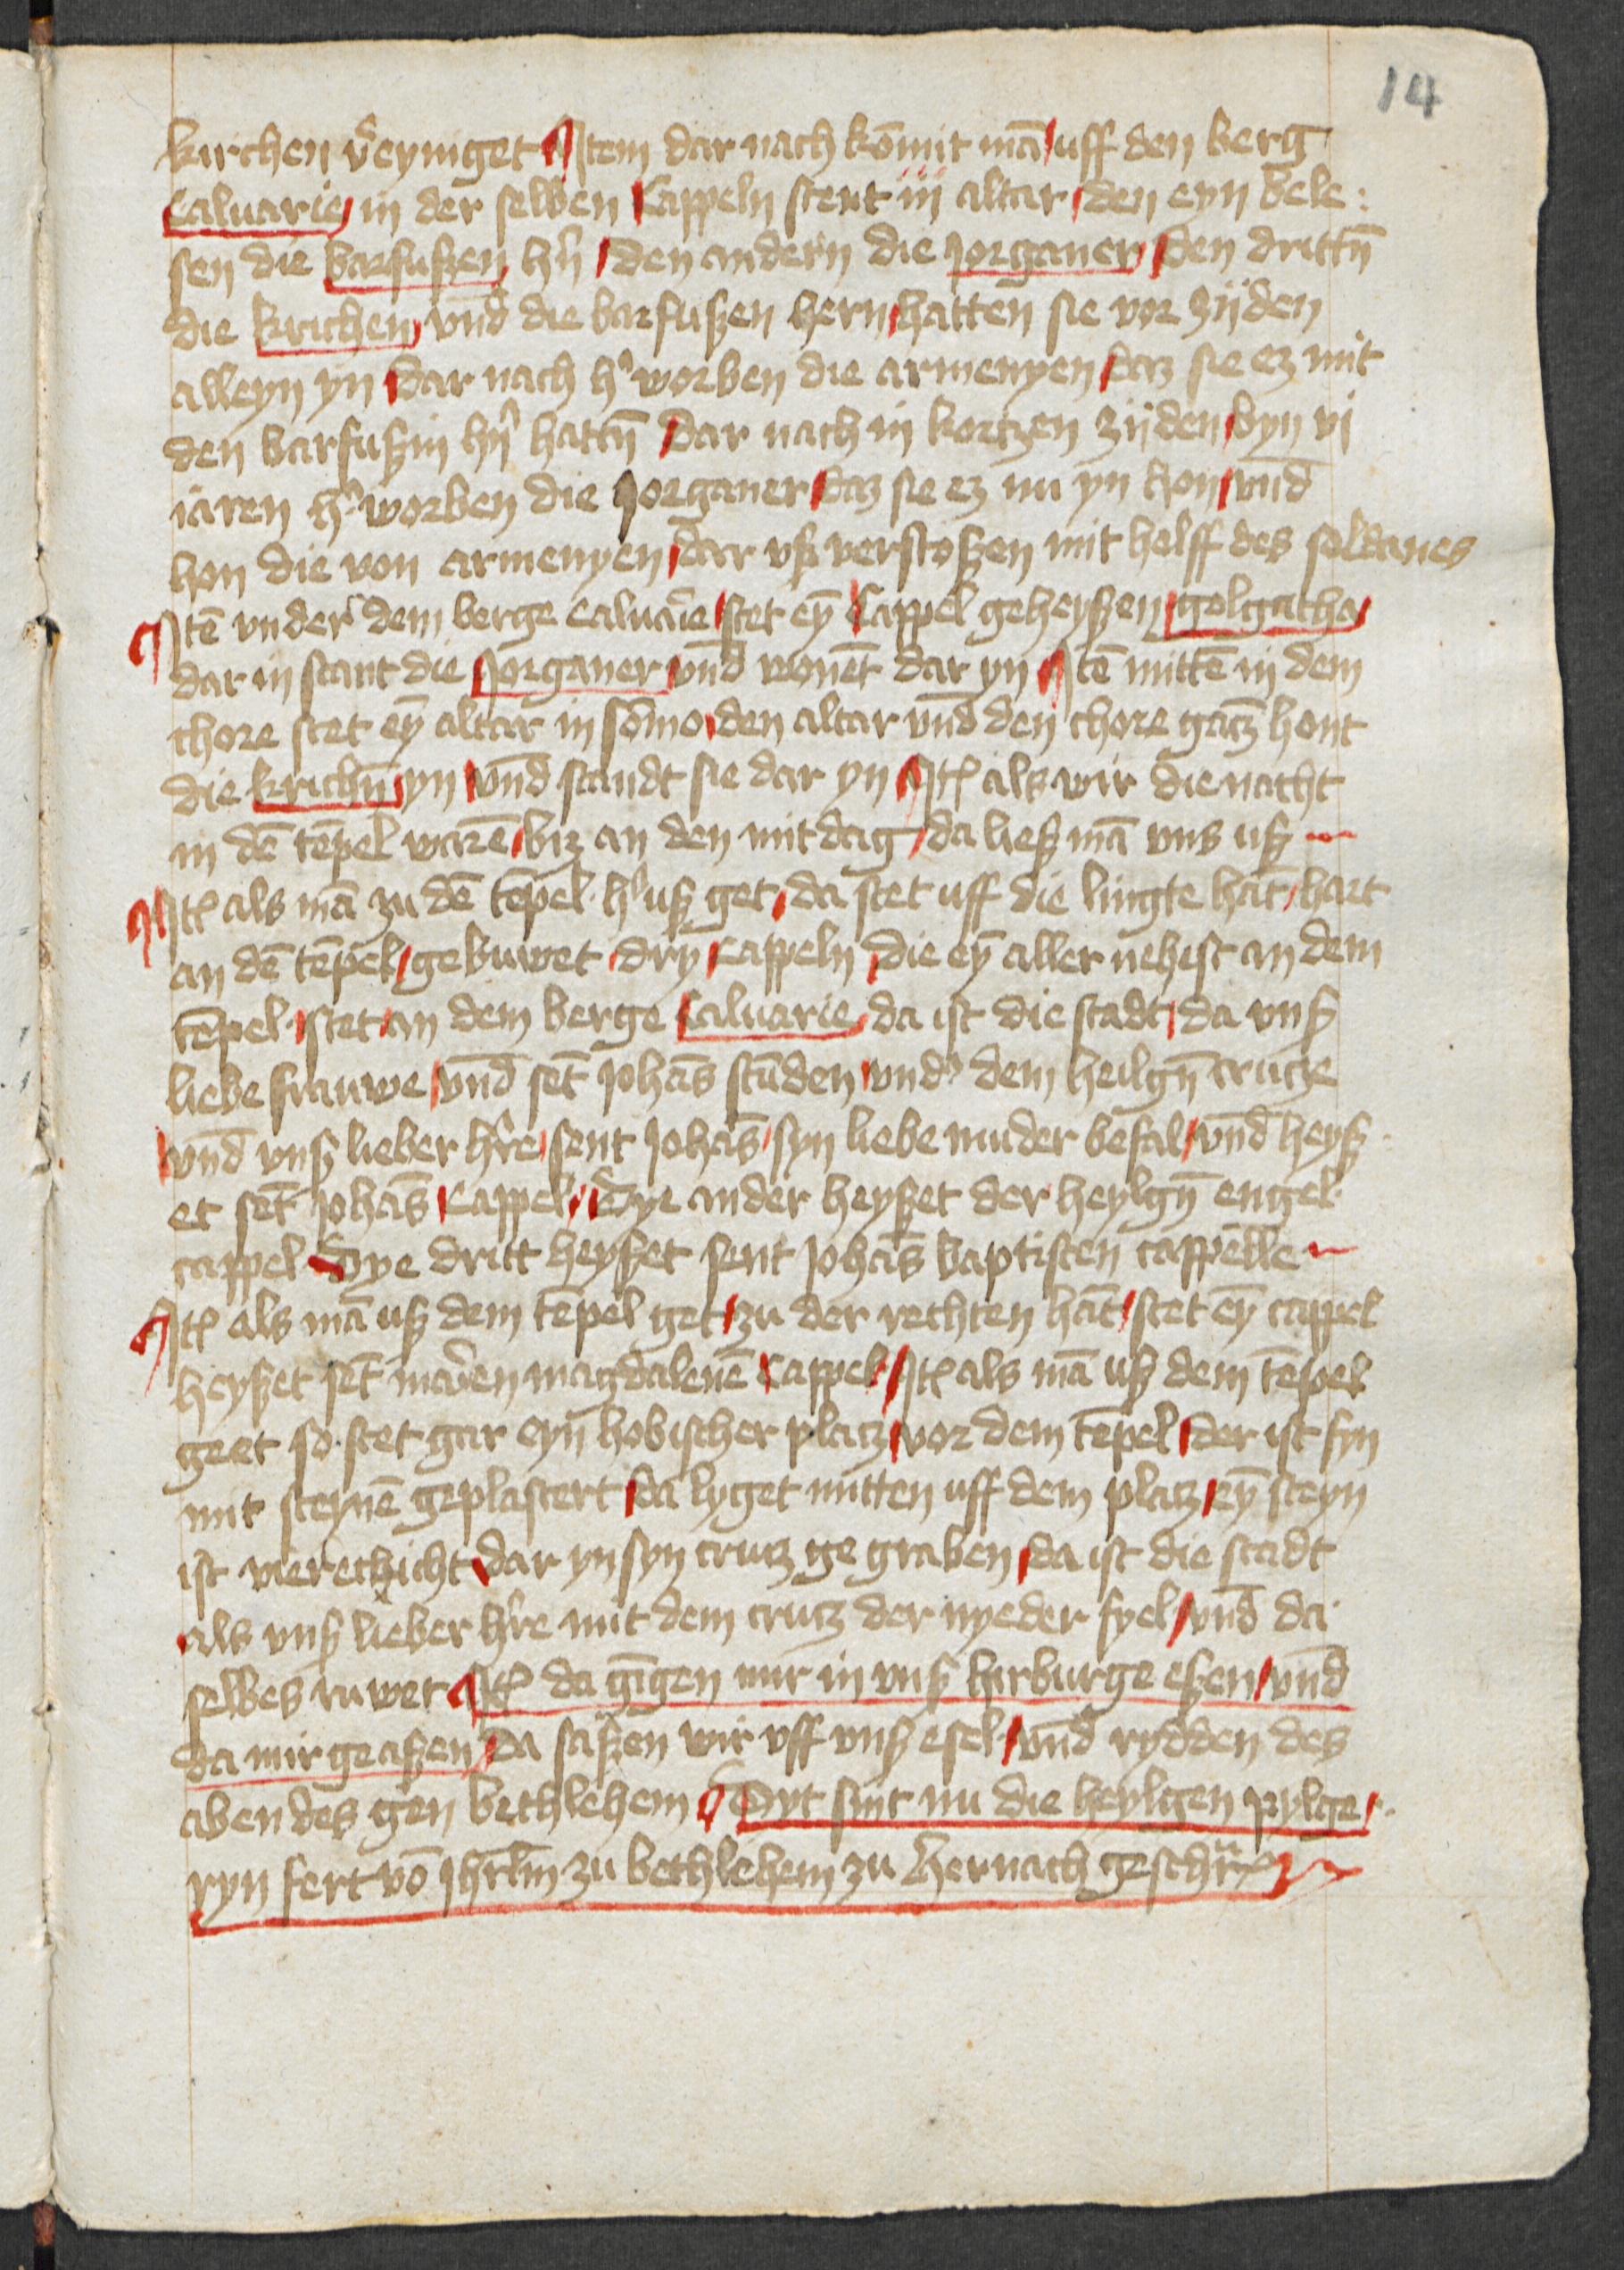 14
kirchen v̓eyniget Item dar nach kōmit mā uff den berg
Caluarie in der selben Cappeln stent iii altar den eyn bele:
sen die barfußen hn̄ den andern die Jorganer den drittn̄
die krichen vnd̄ die barfußen hern hatten sie vor zijden
alleyn yn dar nach h̓ worben die armenyen daz sie ez mit
den barfußin hn̄ hattn̄ Dar nach in kortzen zijden byn vi
iaren h̓ worben die Jorganer daz sie ez nu yn hon vnd̄
hon die von armenyen dar vß verstoßen mit helff des soldanes
Itē vnder dem berge caluar̄ie stet eyn̄ Cappel geheyßen golgatha
dar in stant die Jorganer vnd̄ wonēt dar yn Itē mittē in dem
chore stet eyn̄ altar in sōmo den altar vnd̄ den chore gātz hont
die krichn̄ yn vnd̄ standt sie dar yn Itꝫ als wir die nacht
in dē tēpel warē biz an den mit dag da ließ mā vns uß
Itꝫ als mā zu dē tēpel h̓ uß get da stet uff die lingte hāt hart
an dē tēpel gebuwet dry Cappeln die eyn̄ aller nehist an dem
tēpel stet an dem berge Caluarie da ist die stadt da vnß
liebe frauwe vnd̄ sēt Johās stūden vnd̓ dem heilgn̄ crutze
vnd̄ vnß lieber hr̄e sent Johās syn liebe muder befal vnd̄ heyß
et sēt Johās Cappel Dye ander heyßet der heylgn̄ engel
cappel Dye dritt heyßet sent Johās baptisten cappelle
Itꝫ als mā uß dem tēpel get zu der rechten hāt stet eyn̄ cappel
heyßet sēt mar̄en magdalenē Cappel Itꝫ als mā uß dem tēpel
geet so stet gar eyn hobischer platz vor dem tēpel der ist fyn
mit steynē geplastert da lyget mitten uff dem platz eyn̄ steyn
ist vierechicht dar yn syn crutz ge graben da ist die stadt
als vnß lieber hr̄e mit dem crutz der nyeder fyel vnd̄ da
selbes ruwet Itꝫ da gīgen mir in vnß hirburge eßen vnd̄
da mir geaßen da saßen wir vff vnß esel vnd̄ rydden des
abendes gen bethlehem Dyt sint nu die heylgen pylge
ryn fert vō Jhr̄lm zu bethlehem zu hernach geschr̄